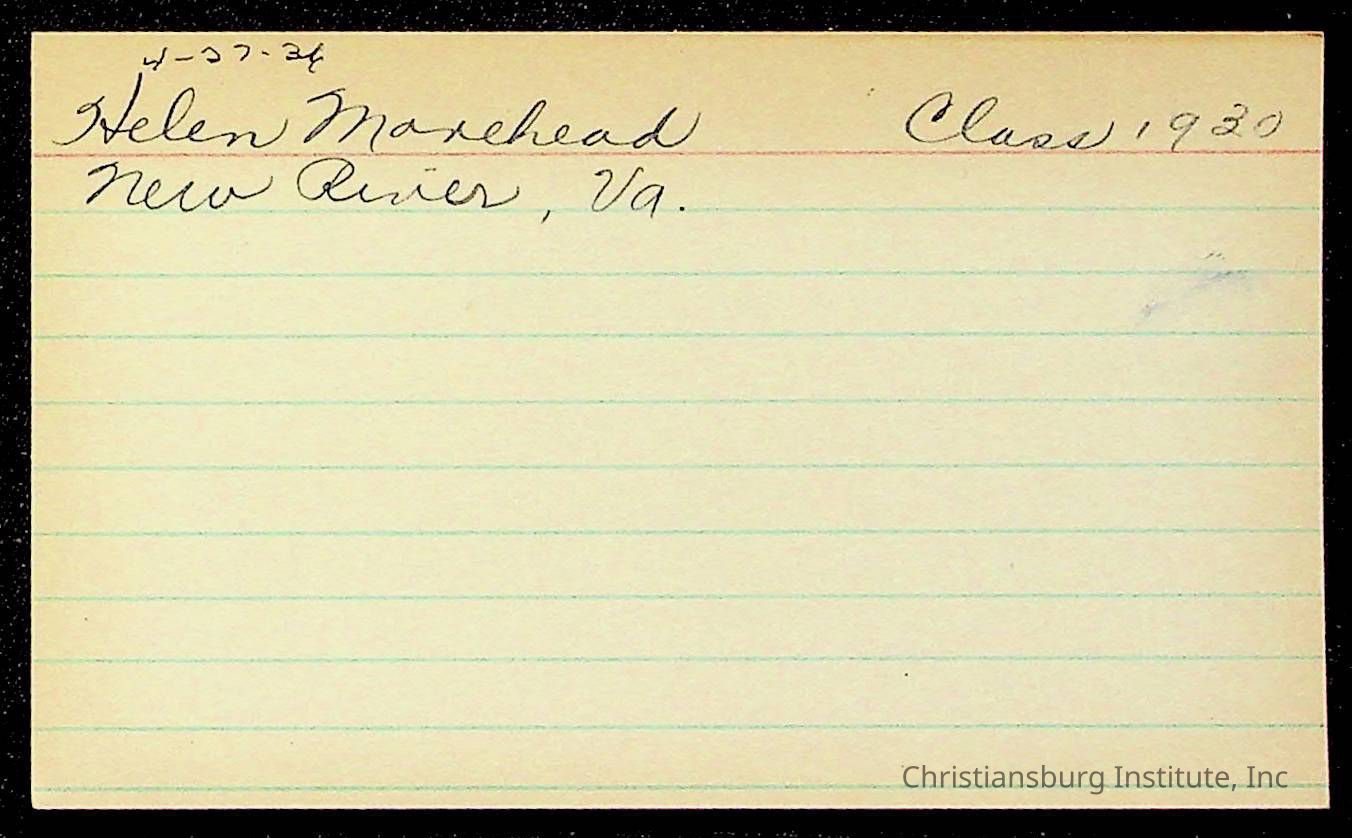 4-27-36
Helen Morehead Class 1930
New River, Va.
Christiansburg Institute, Inc